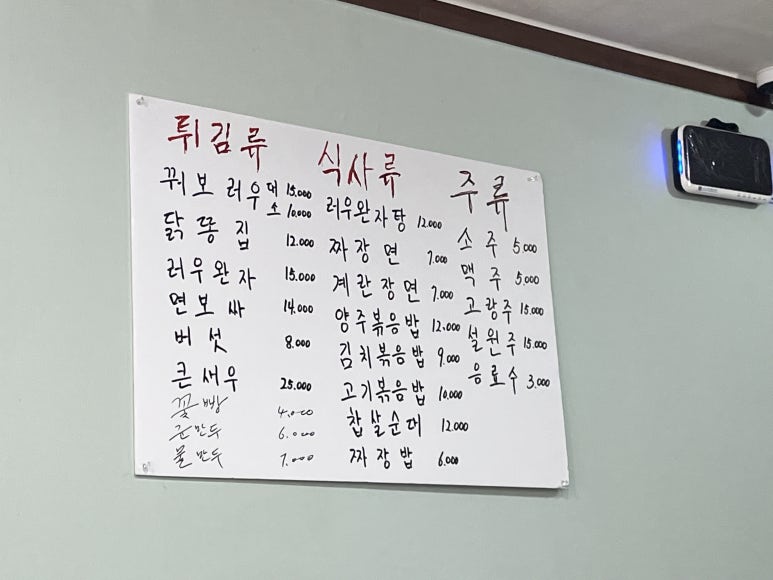 튀김류
꿔보러우 대 15.000
소 10.000
닭똥집 12.000
러우완자 15.000
면보싸 14.000
버섯 8.000
큰새우 25.000
꽃빵 4.000
군만두 6.000
물만두 7.000
식사류
러우완자탕 12.000
짜장면 7.000
계란장면 7.000
양주볶음밥 12.000
김치볶음밥 9.000
고기볶음밥 10.000
찹쌀순대 12.000
짜장밥 6.000
주류
소주 5.000
맥주 5.000
고량주 15.000
설원주 15.000
응료수 3.000